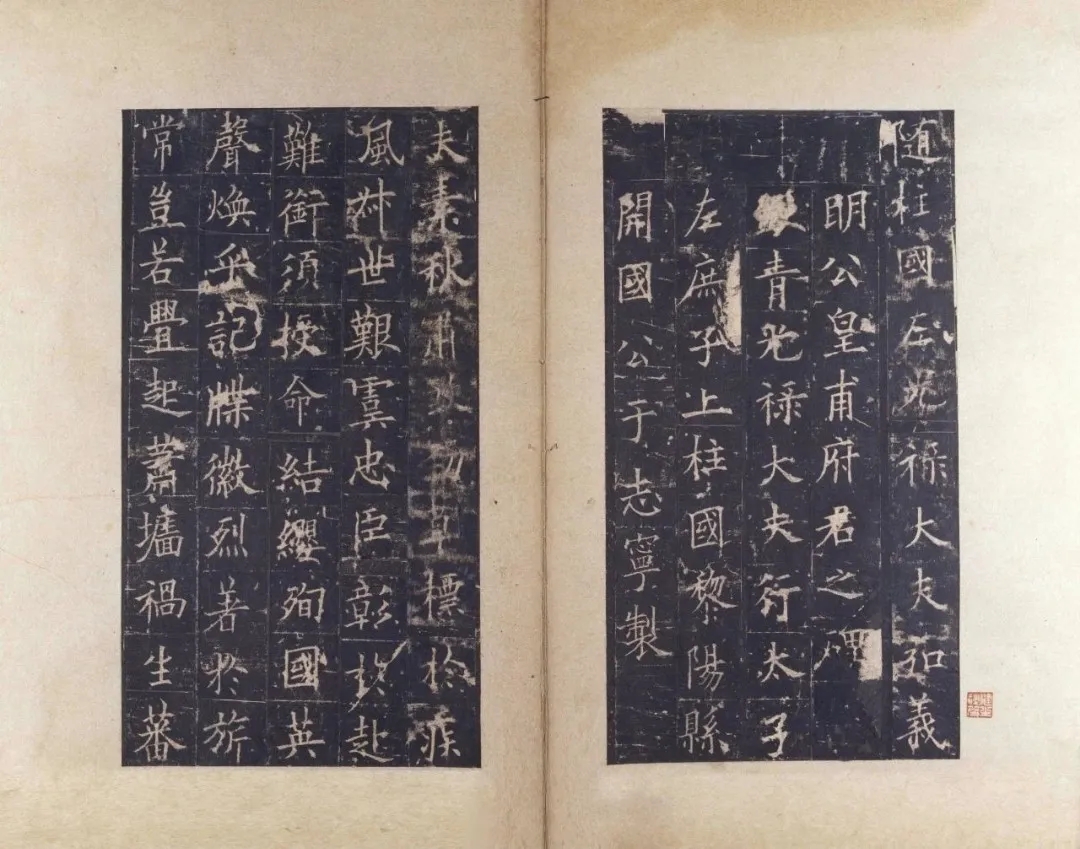 随柱國左光祿大夫弘義
明公皇甫府君之碑
青光祿大夫行太子
左庶子上柱國黎陽縣
開國公于志寧製
夫素秋肅煞勁草標於疾
風叔世艱虞忠臣彰於赴
難銜須授命結纓殉國英
聲煥乎記牒徽烈著於旂
常豈若疊起蕭墻禍生蕃